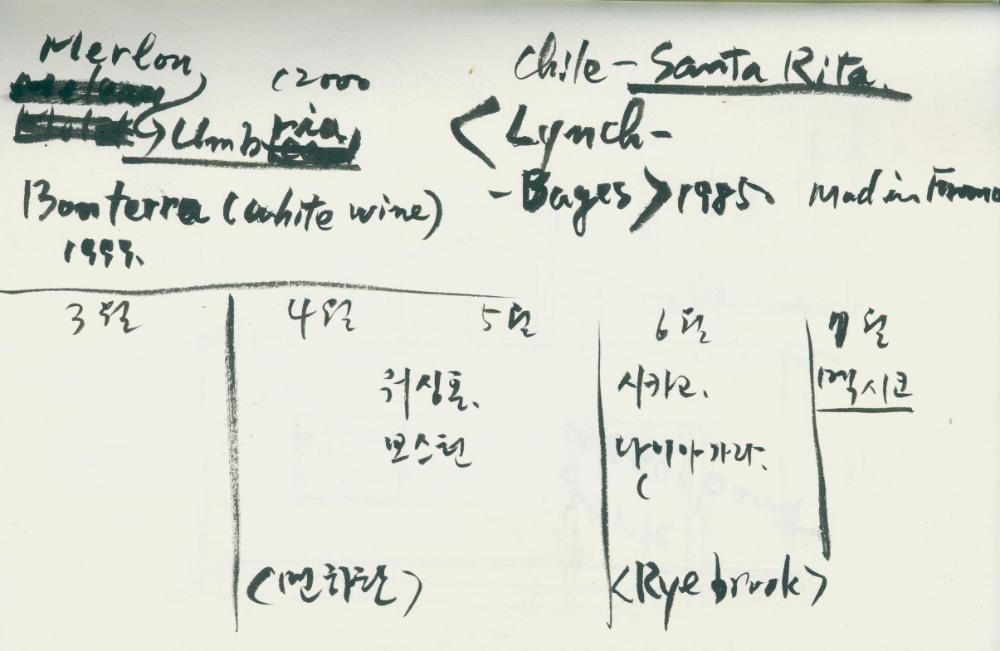 Merlon
Umbria
c2000
Bonterra (white wine)
1999.
Chile - Santa Rita.
<Lynch-
-Bages> 1985.
Mad in
3월 4월 5월 6월 7월
워싱톤. 시카고. 멕시코
보스턴 나이아가라.
(맨하탄) <Rye brook>